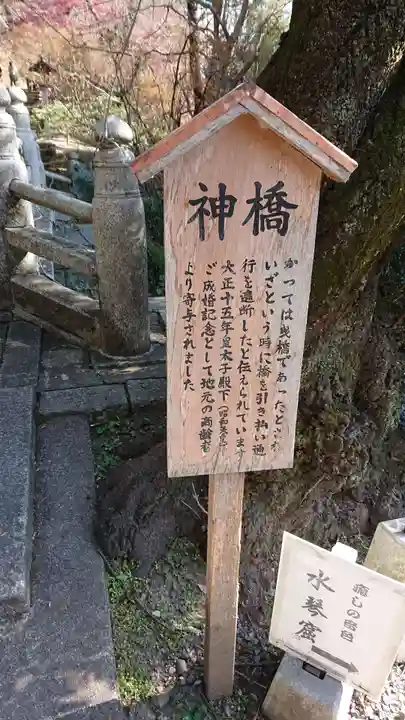 神橋
かつては曳橋であったとされ
いざという時に橋を引き払い通
行を遮断したと伝えられています
大正十五年皇太子殿下(昭和天皇)
ご成婚記念として地元の高齢者
より寄与されました
癒しの音色
水琴窟